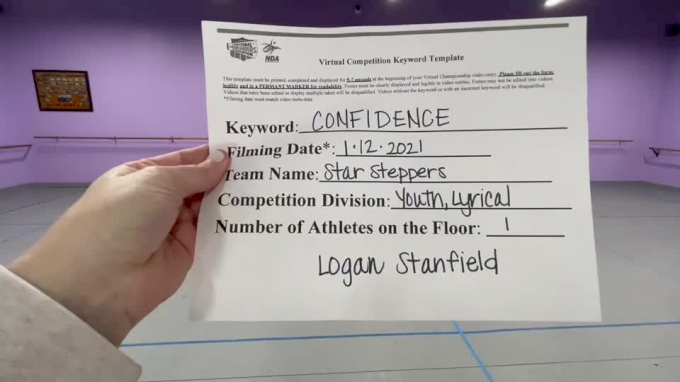 NDA
Virtual Competition Keyword Template
This template must be printed, completed and displayed for 5-7 seconds at the beginning of your Virtual Championship video entry. Please fill out the form
legibly and in a PERMANT MARKER for readability. Forms must be clearly displayed and legible in video entries. Forms may not be edited into videos.
Videos that have been edited or display multiple takes will be disqualified. Videos without the keyword or with an incorrect keyword will be disqualified.
*Filming date must match video meta-data.
Keyword: CONFIDENCE
Filming Date*: 1.12.2021
Team Name: Star Steppers
Competition Division: Youth, Lyrical
Number of Athletes on the Floor: 1
Logan Stanfield